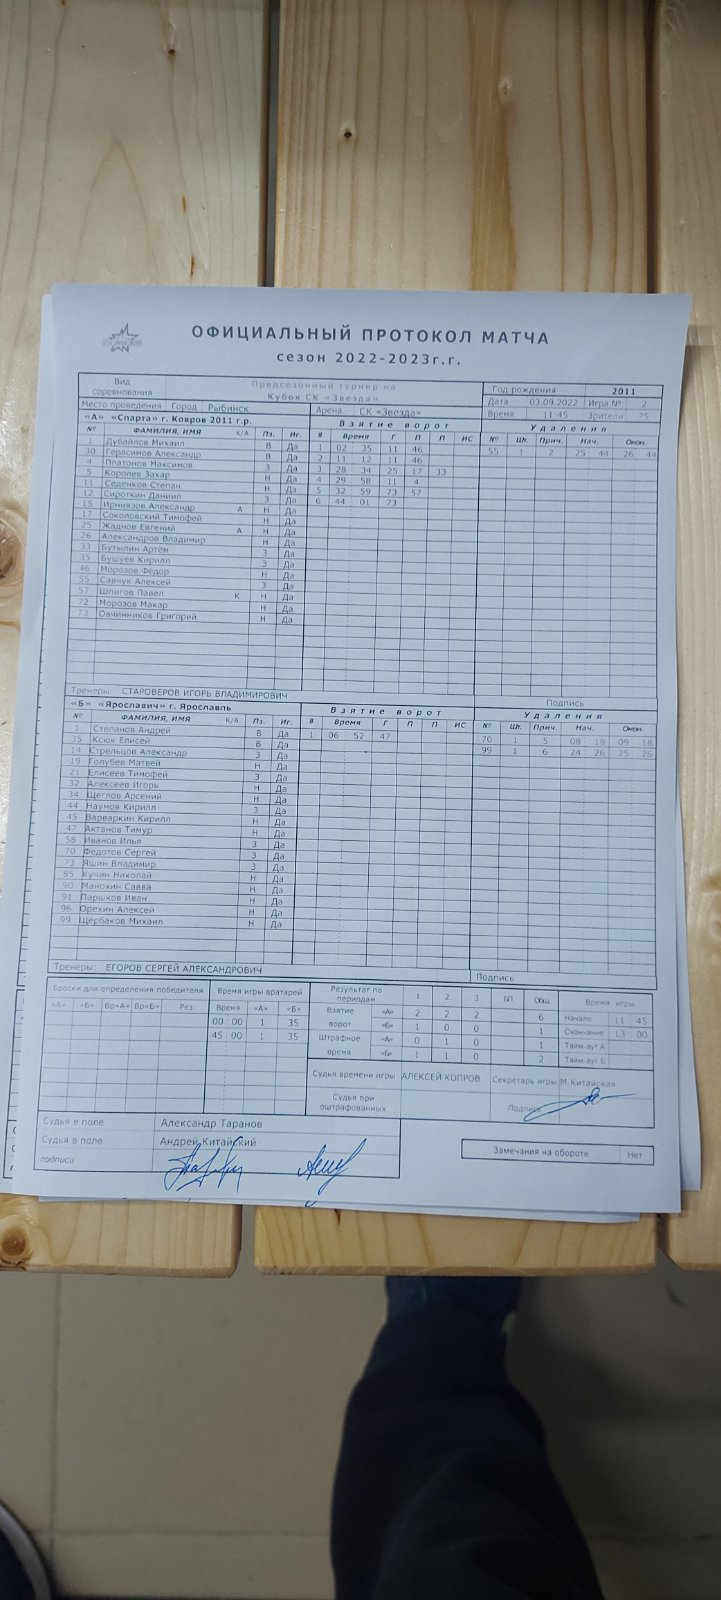 ОФИЦИАЛЬНЫЙ ПРОТОКОЛ МАТЧА
сезон 2022-2023г.г.
Вид соревнования Предсезонный турнир на Кубок СК «Звезда» Год рождения 2011
Дата 03.09.2022 Игра № 2
Место проведения Город Рыбинск Арена СК «Звезда» Время 11:45 Зрители 75
«А» «Спарта» г. Ковров 2011 г.р. Взятие ворот Удаления
№ ФАМИЛИЯ, ИМЯ К/А Пз. Иг. # Время Г П П ИС № Шт. Прич. Нач. Окон.
1 Дубайлов Михаил В Да 1 02 35 11 46 55 1 2 25 44 26 44
30 Герасимов Александр В Да 2 11 12 11 46
4 Платонов Максимов З Да 3 28 34 25 17 33
5 Королев Захар Н Да 4 29 58 11 4
11 Седенков Степан Н Да 5 32 59 73 57
12 Сироткин Даниил З Да 6 44 01 73
15 Ирниязов Александр А Н Да
17 Соколовский Тимофей Н Да
25 Жаднов Евгений А Н Да
26 Александров Владимир Н Да
33 Бутылин Артём З Да
35 Бушуев Кирилл З Да
46 Морозов Фёдор Н Да
55 Савчук Алексей З Да
57 Шпигов Павел К Н Да
72 Морозов Макар Н Да
73 Овчинников Григорий Н Да
Тренеры: СТАРОВЕРОВ ИГОРЬ ВЛАДИМИРОВИЧ Подпись
«Б» «Ярославич» г. Ярославль Взятие ворот Удаления
№ ФАМИЛИЯ, ИМЯ К/А Пз. Иг. # Время Г П П ИС № Шт. Прич. Нач. Окон.
1 Степанов Андрей В Да 1 06 52 47 70 1 5 08 18 09 18
35 Ксюк Елисей В Да 99 1 6 24 26 25 26
14 Стрельцов Александр З Да
19 Голубев Матвей Н Да
21 Елисеев Тимофей З Да
32 Алексеев Игорь Н Да
34 Щеглов Арсений Н Да
44 Наумов Кирилл З Да
45 Варваркин Кирилл Н Да
47 Актанов Тимур Н Да
58 Иванов Илья З Да
70 Федотов Сергей З Да
73 Яшин Владимир З Да
85 Кучин Николай Н Да
90 Манохин Савва Н Да
91 Паршков Иван Н Да
96 Орехин Алексей Н Да
99 Щербаков Михаил Н Да
Тренеры: ЕГОРОВ СЕРГЕЙ АЛЕКСАНДРОВИЧ Подпись
Броски для определения победителя Время игры вратарей Результат по периодам 1 2 3 БП Общ Время игры
«А» «Б» Вр«А» Вр«Б» Рез. Время «А» «Б» Взятие ворот «А» 2 2 2 6 Начало 11 45
00:00 1 35 «Б» 1 0 0 1 Окончание 13 00
45:00 1 35 Штрафное время «А» 0 1 0 1 Тайм-аут А
«Б» 1 1 0 2 Тайм-аут Б
Судья времени игры АЛЕКСЕЙ КОПРОВ Секретарь игры М.Китайская
Судья при оштрафованных Подпись
Судья в поле Александр Таранов
Судья в поле Андрей Китайский
подписи
Замечания на обороте Нет